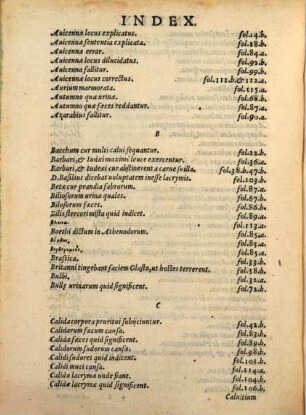 INDEX.
Auicennæ locus explicatus. fol.14.b.
Auicennæ sententia explicata. fol.18.b.
Auicennæ error. fol.84.a.
Auicennæ locus dilucidatus. fol.91.b.
Auicenna fallitur. fol.99.b.
Auicennæ locus correctus. fol.111.b.&112.a.
Aurium marmorata. fol.115.a.
Autumno quæ urinæ. fol.68.b.
Autumno quæ fæces reddantur. fol.87.a.
Azarabius fallitur. fol.90.a.
B
Bacchum cur multi calui sequantur. fol.22.b.
Barbari,& Iudæi maximi leuce exercentur. fol.36.a.
Barbari,& Iudæi cur abstinerent a carne suilla. fol.38.b.&37.b.
D.Basilius dicebat uoluptatem inesse lacrymis. fol.103.b.
Betæ cur prandia fabrorum. fol.21.b.
Biliosorum urinæ quales. fol.67.b.
Biliosorum fæces. fol.86.b.
Bilis stercori mista quid indicet. fol.89.a.
fol.112.a.
Boethi dictum in Athenodorum. fol.85.a.
fol.85.a.
fol.85.a.
Brastica. fol.21.b.
Britanni tingebant faciem Glasto,ut hostes terrerent. fol.38.b.
Bulbi. fol.21.b.
Bullæ urinarum quid significent. fol.72.b.
C
Calida corpora pruritui subijciuntur. fol.43.b.
Calidarum fæcum causa.
Calidæ fæces quid significent.
Calidorum sudorum causa.
Calidi sudores quid indicent. fol.101.b.
Calidi muci causa. fol.114.a.
Calida lacryma unde fiant. fol.104.b.
Calida lacryma quid significent.
Caluitium